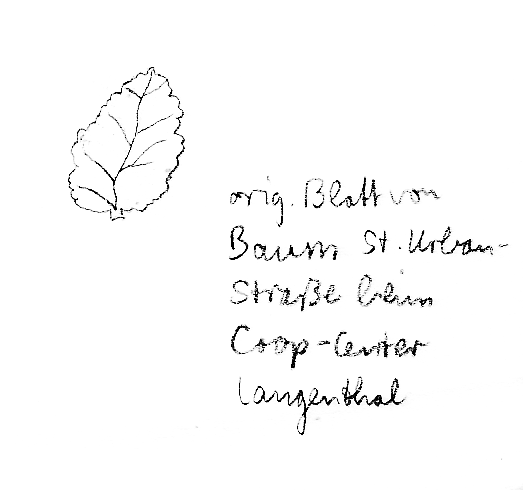 orig. Blatt von
Baum St. Urban-
Straße beim
Coop-Center
Langenthal